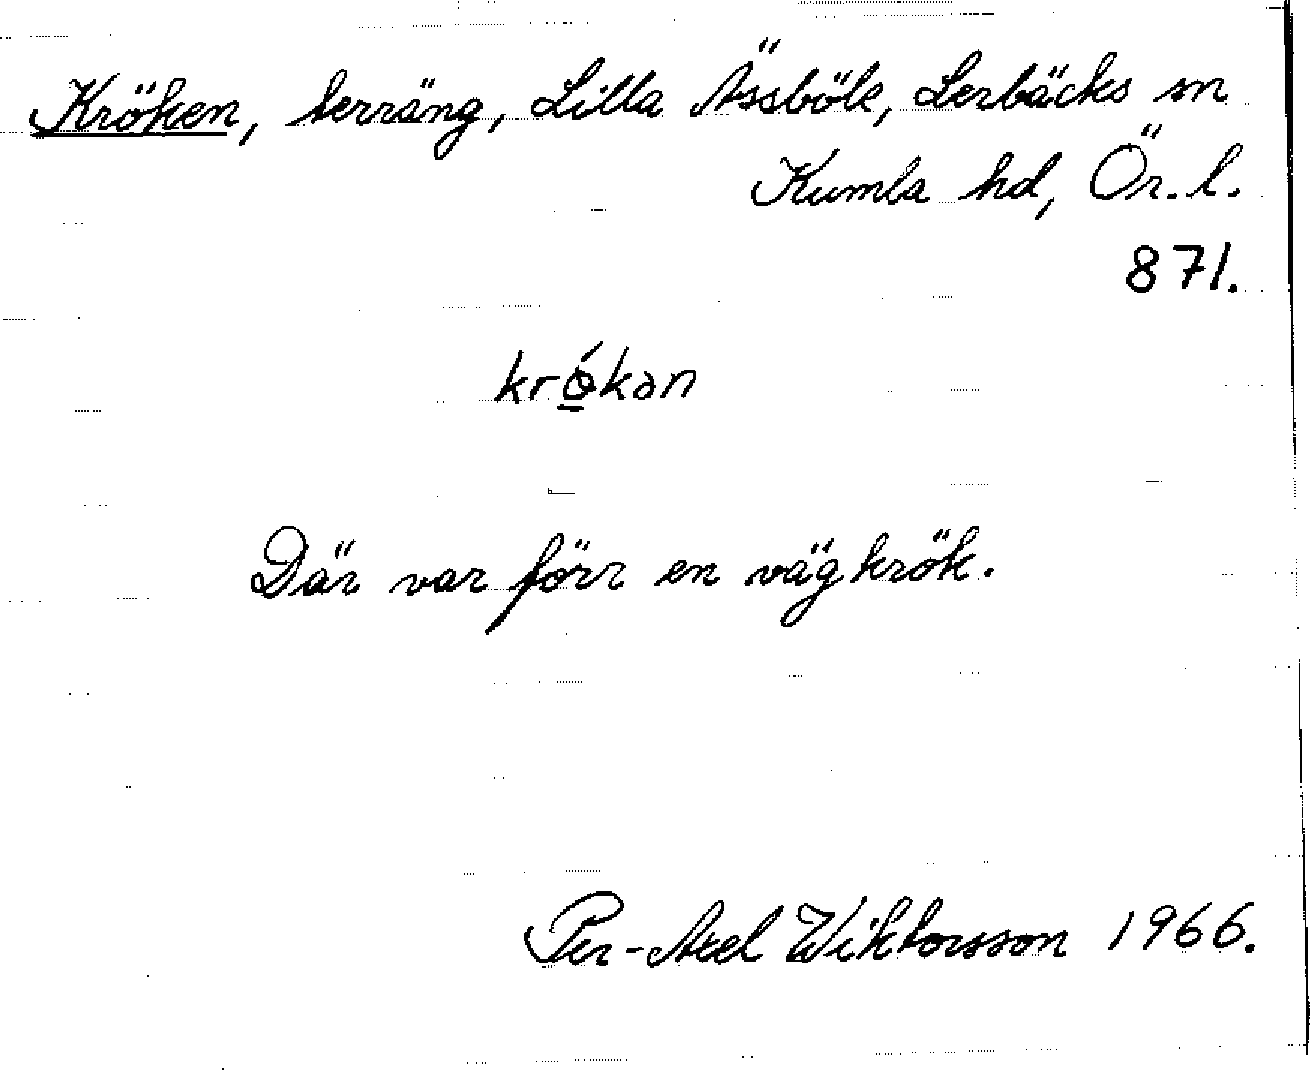 Kröken, terräng, Lilla Ässböle, Lerbäcks sn
Kumla hd, Ör. l.
871.
krö́kan
Där var förr en vägkrök.
Per-Axel Wiktorsson 1966.